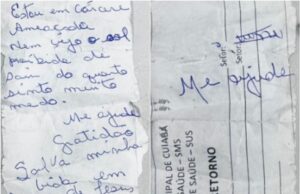 Estou em cárcere
Ameaçada
Nem vejo o sol
proibida de
sair do quarto
sinto muito
medo.
Me ajude
Gratidão
Salva minha
vida em
de Jesus
Me ajude
IPAL DE CUIABÁ
SAÚDE - SMS
E SAÚDE - SUS
RETORNO